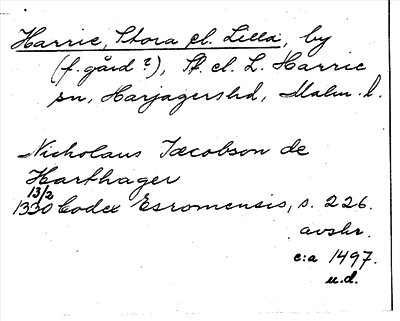 Harrie, Stora el. Lilla, by
(f. gård?), St. el. L. Harrie
sn, Harjagers hd, Malm. l.
Nicholaus Jacobson de
Harthager
13/2
1330 Codex Esromensis, s. 226.
avskr.
c:a 1497.
u.d.